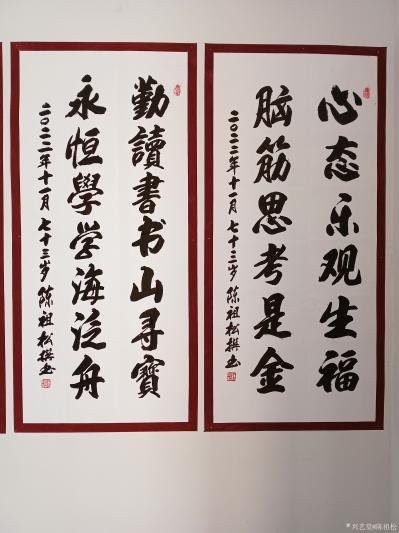 心态乐观生福
脑筋思考是金
二〇二二年十一月 七十三岁 陈祖松撰书
勤讀書书山寻寶
永恒學学海泛舟
二〇二二年十一月 七十三岁 陈祖松撰书
兴艺堂@陈祖松